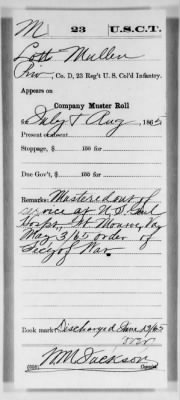 M | 23 | U.S.C.T.
Lott Mullen
Priv, Co. D, 23 Reg't U. S. Col'd Infantry.
Appears on
Company Muster Roll
for July & Aug, 1865
Present or absent
Stoppage, $ 100 for
Due Gov't, $ 100 for
Remarks: Mustered out of
service at U.S. Genl
Hospt, Ft. Monroe, Va
May 3/65 order of
Secy of War
Book mark: Discharged June
W M Jackson
Copyist.